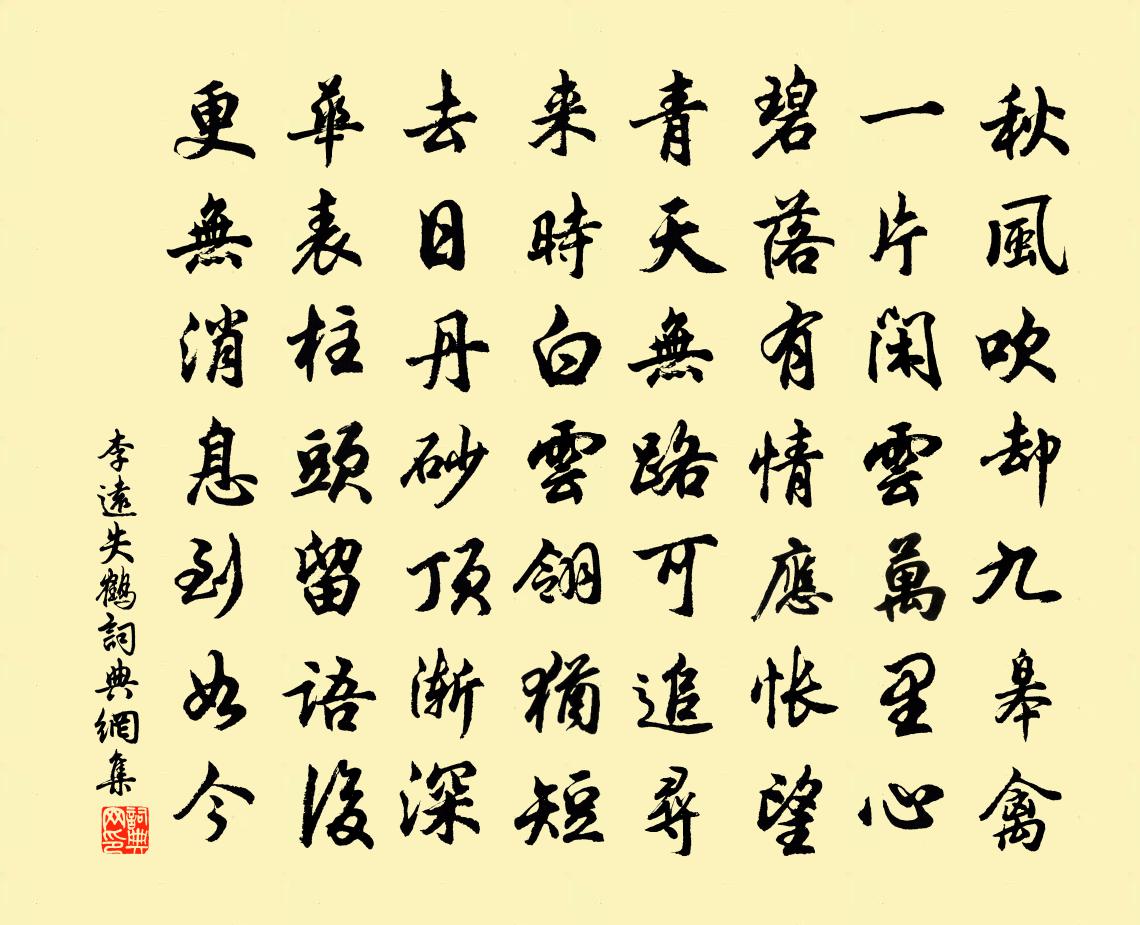 秋風吹却九皋禽
一片閑雲萬里心
碧落有情應悵望
青天無路可追尋
来時白雲翎猶短
去日丹砂頂漸深
華表柱頭留語後
更無消息到如今
李遠失鶴詞典網集
詞典网印